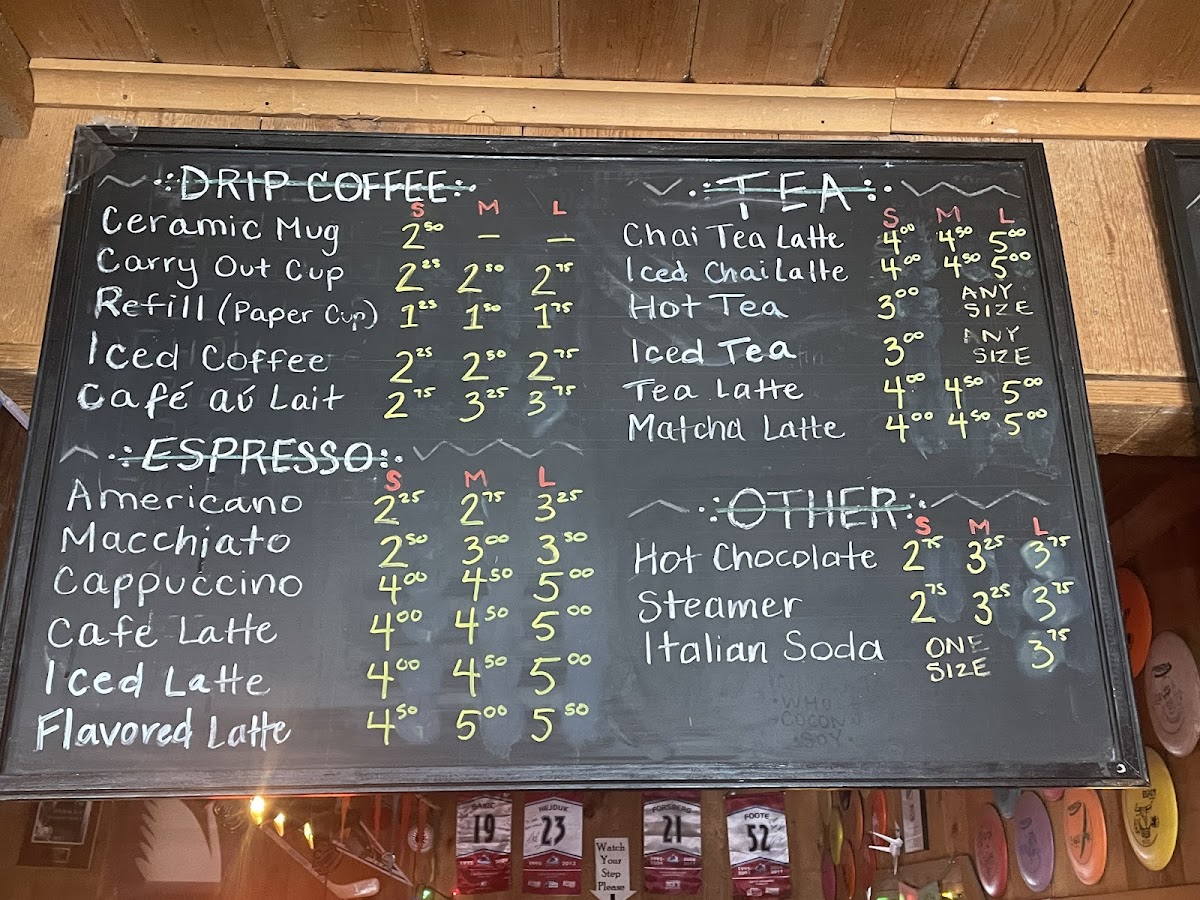 DRIP COFFEE
S M L
Ceramic Mug 2.50 — —
Carry Out Cup 2.25 2.50 2.75
Refill (Paper Cup) 1.25 1.50 1.75
Iced Coffee 2.25 2.50 2.75
Café aú Lait 2.75 3.25 3.75
ESPRESSO
S M L
Americano 2.25 2.75 3.25
Macchiato 2.50 3.00 3.50
Cappuccino 4.00 4.50 5.00
Cafe Latte 4.00 4.50 5.00
Iced Latte 4.00 4.50 5.00
Flavored Latte 4.50 5.00 5.50
TEA
S M L
Chai Tea Latte 4.00 4.50 5.00
Iced Chai Latte 4.00 4.50 5.00
Hot Tea 3.00 ANY SIZE
Iced Tea 3.00 ANY SIZE
Tea Latte 4.00 4.50 5.00
Matcha Latte 4.00 4.50 5.00
OTHER
S M L
Hot Chocolate 2.75 3.25 3.75
Steamer 2.75 3.25 3.75
Italian Soda ONE SIZE 3.75
SAKIC
19
HEJDUK
23
Watch
Your
Step
Please
FORSBERG
21
FOOTE
52